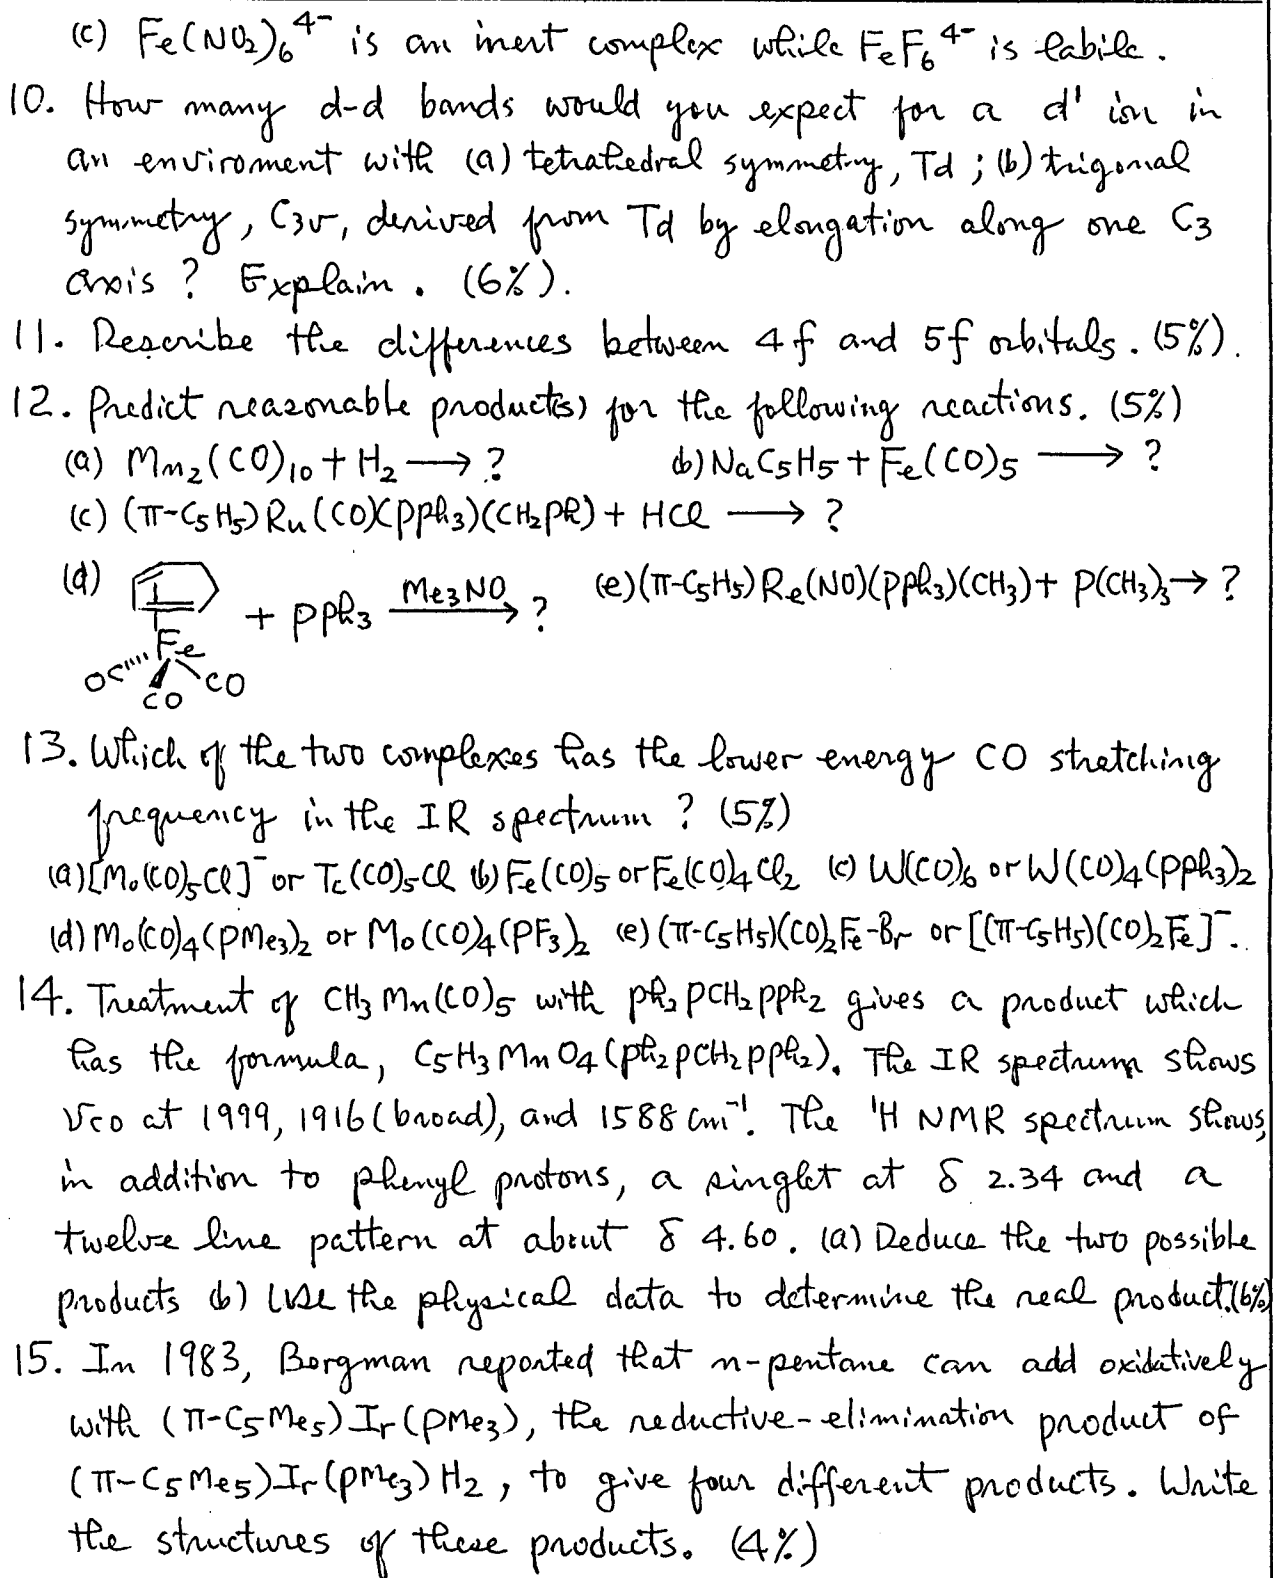 (c) Fe(NO₂)₆⁴⁻ is an inert complex while FeF₆⁴⁻ is labile.
10. How many d-d bands would you expect for a d¹ ion in
an enviroment with (a) tetrahedral symmetry, Td ; (b) trigonal
symmetry, C3v, derived from Td by elongation along one C3
axis ? Explain. (6%).
11. Describe the differences between 4f and 5f orbitals. (5%).
12. Predict reazonable product(s) for the following reactions. (5%)
(a) Mn₂(CO)₁₀ + H₂ ⟶ ? (b) NaC₅H₅ + Fe(CO)₅ ⟶ ?
(c) (π-C₅H₅)Ru(CO)(pph₃)(CH₂ph) + HCl ⟶ ?
(d) + pph₃ Me₃NO ⟶ ? (e) (π-C₅H₅)Re(NO)(pph₃)(CH₃) + P(CH₃)₃ → ?
Fe
OC CO
CO
13. Which of the two complexes has the lower energy CO stretching
frequency in the IR spectrum ? (5%)
(a) [Mo(CO)₅Cl]⁻ or Tc(CO)₅Cl (b) Fe(CO)₅ or Fe(CO)₄Cl₂ (c) W(CO)₆ or W(CO)₄(pph₃)₂
(d) Mo(CO)₄(PMe₃)₂ or Mo(CO)₄(PF₃)₂ (e) (π-C₅H₅)(CO)₂Fe-Br or [(π-C₅H₅)(CO)₂Fe]⁻.
14. Treatment of CH₃Mn(CO)₅ with ph₂pCH₂pph₂ gives a product which
has the formula, C₅H₃MnO₄(ph₂pCH₂pph₂). The IR spectrum shows
νco at 1999, 1916 (broad), and 1588 cm⁻¹. The ¹H NMR spectrum shows,
in addition to phenyl protons, a singlet at δ 2.34 and a
twelve line pattern at about δ 4.60. (a) Deduce the two possible
products (b) Use the physical data to determine the real product.(6%)
15. In 1983, Bergman reported that n-pentane can add oxidatively
with (π-C₅Me₅)Ir(PMe₃), the reductive-elimination product of
(π-C₅Me₅)Ir(PMe₃)H₂, to give four different products. Write
the structures of these products. (4%)